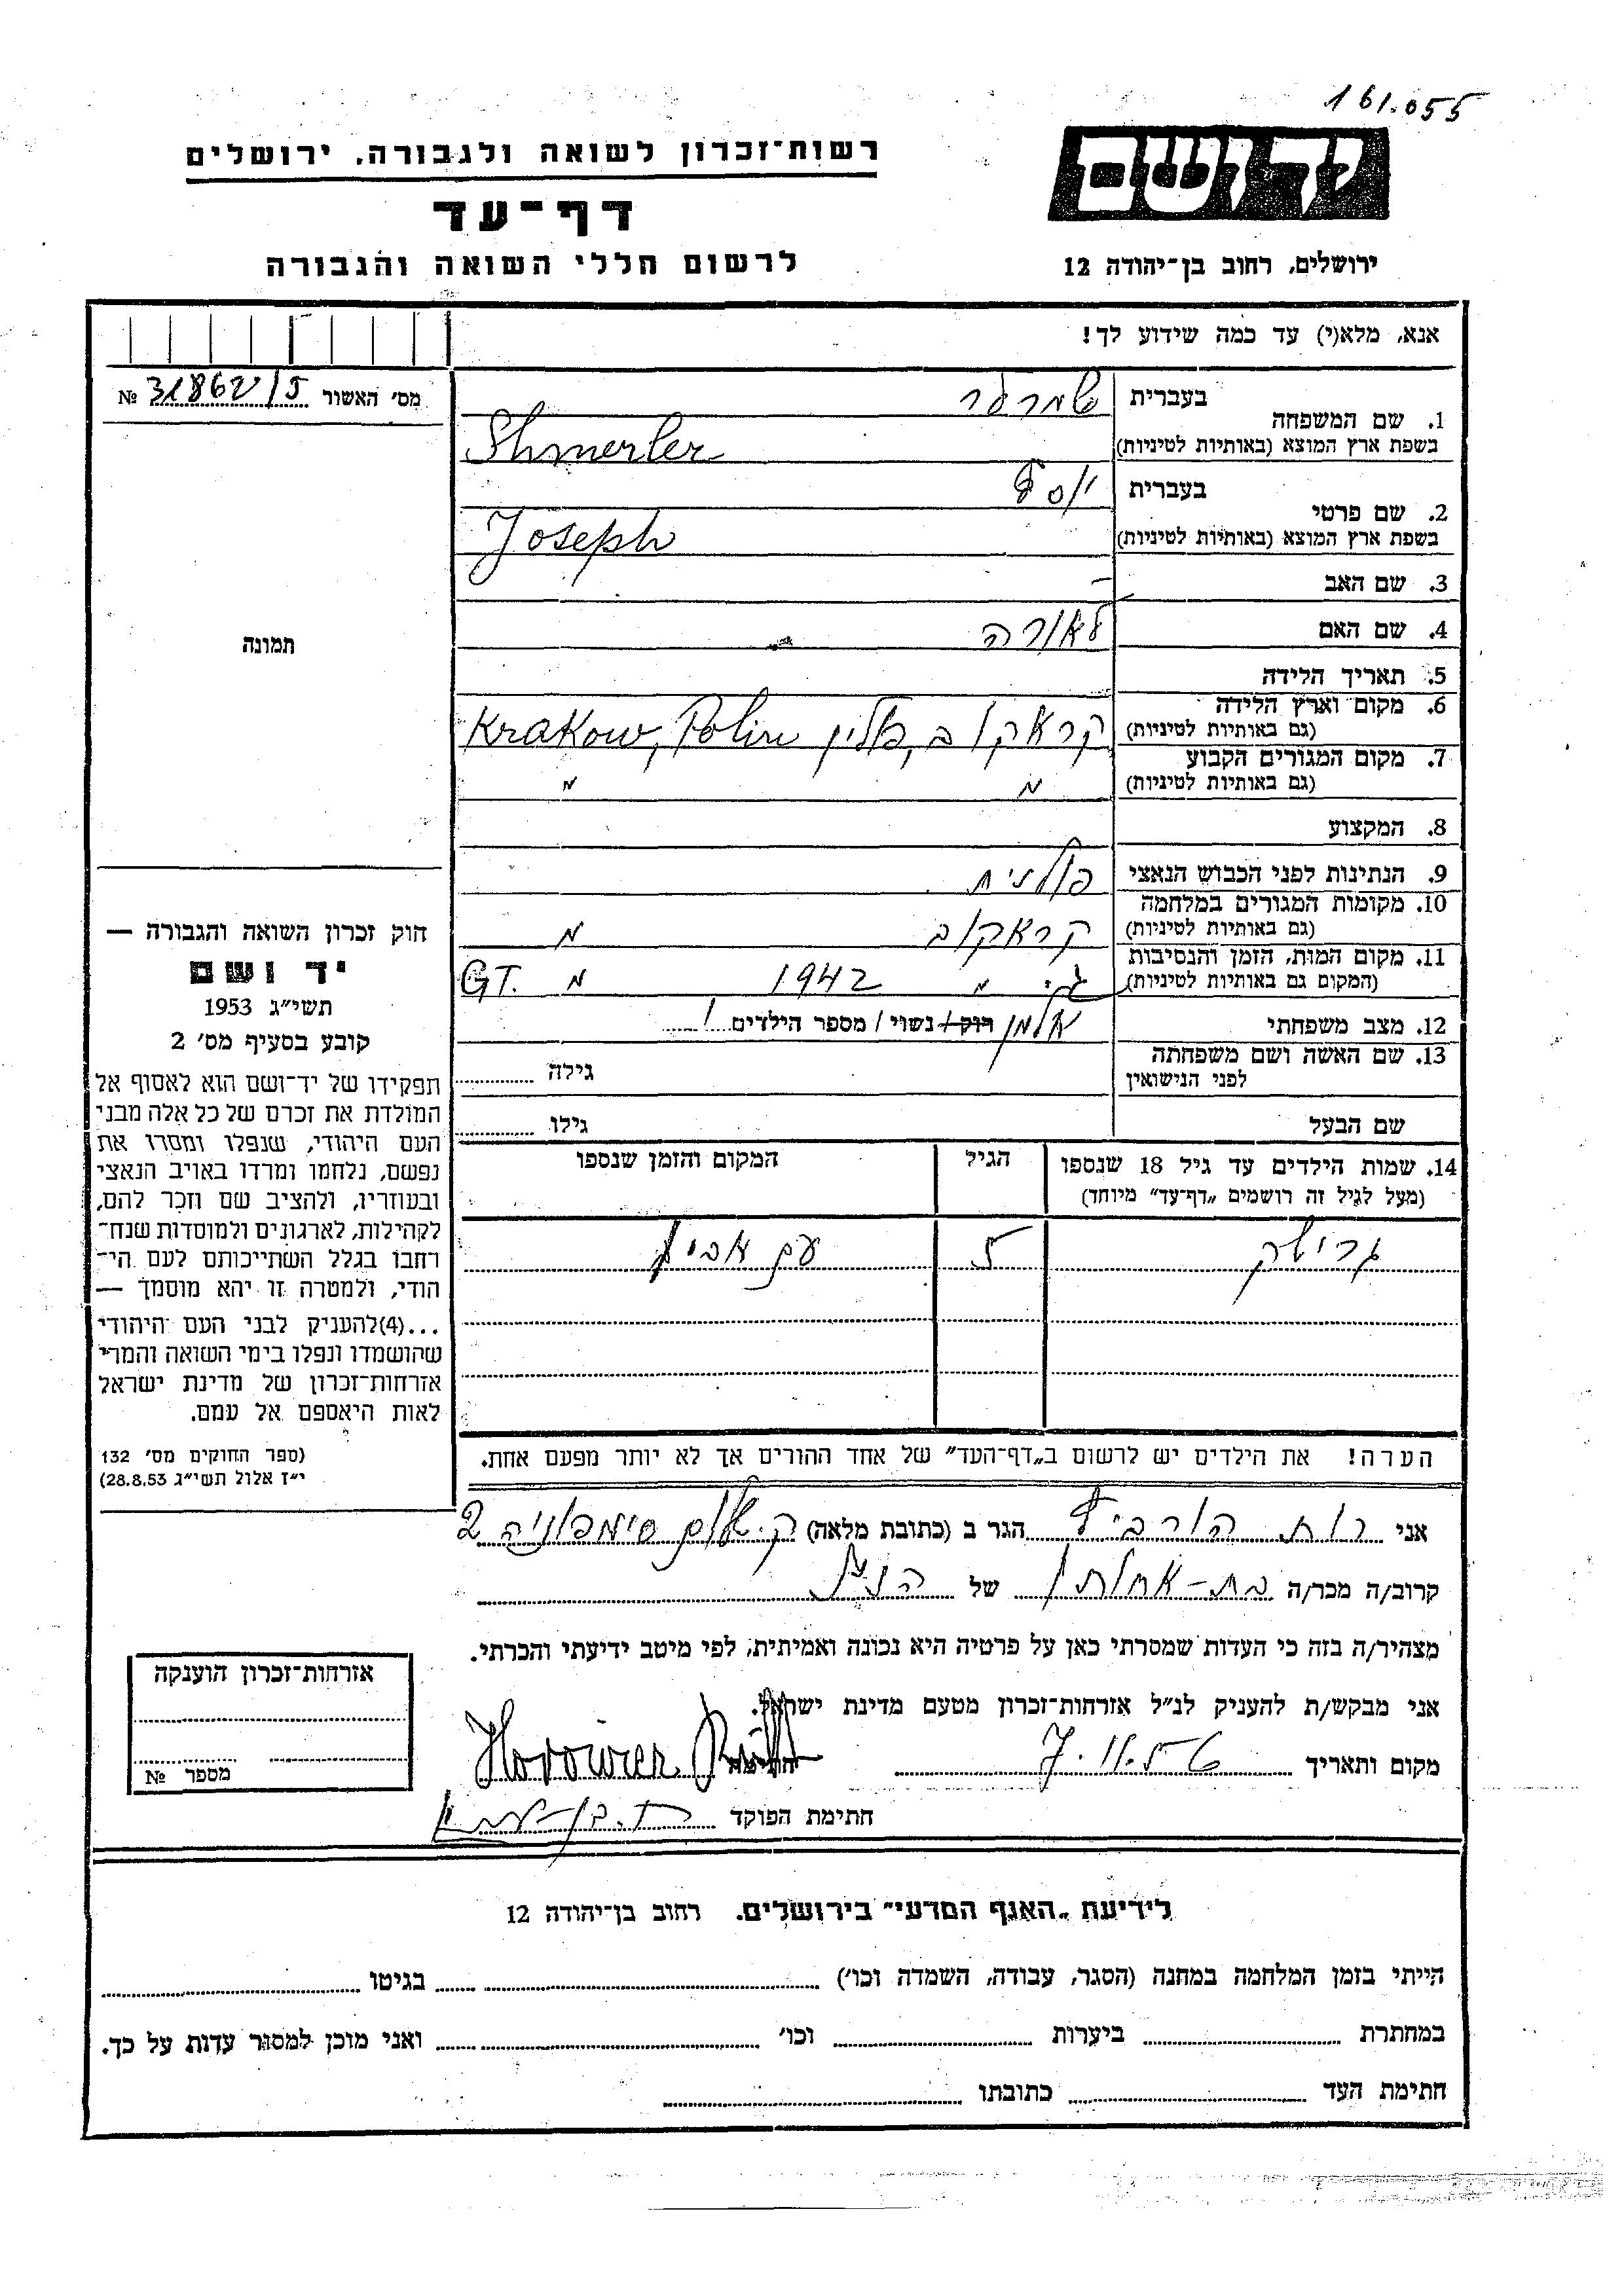 161.055
יד ושם
ירושלים, רחוב בן־יהודה 12
רשות־זכרון לשואה ולגבורה, ירושלים
דף־עד
לרשום חללי השואה והגבורה
אנא, מלא(י) עד כמה שידוע לך!
מס' האשור 31862/5 №
1. שם המשפחה
בעברית שמרלר
בשפת ארץ המוצא (באותיות לטיניות) Shmerler
2. שם פרטי
בעברית יוסף
בשפת ארץ המוצא (באותיות לטיניות) Joseph
3. שם האב –
4. שם האם לאורה
5. תאריך הלידה
6. מקום וארץ הלידה
(גם באותיות לטיניות) קראקוב, פולין Krakow, Polin
7. מקום המגורים הקבוע
(גם באותיות לטיניות) " "
8. המקצוע
9. הנתינות לפני הכבוש הנאצי פולנית
10. מקומות המגורים במלחמה
(גם באותיות לטיניות) קראקוב "
11. מקום המות, הזמן והנסיבות
(המקום גם באותיות לטיניות) גי' " 1942 " GT.
12. מצב משפחתי אלמן רוק / נשוי / מספר הילדים 1
13. שם האשה ושם משפחתה
לפני הנישואין
גילה
שם הבעל
גילו
14. שמות הילדים עד גיל 18 שנספו
(מעל לגיל זה רושמים „דף־עד" מיוחד)
הגיל
המקום והזמן שנספו
5
עם אביו
הערה! את הילדים יש לרשום ב„דף־העד" של אחד ההורים אך לא יותר מפעם אחת.
תמונה
חוק זכרון השואה והגבורה —
יד ושם
תשי"ג 1953
קובע בסעיף מס' 2
תפקידו של יד־ושם הוא לאסוף אל
המולדת את זכרם של כל אלה מבני
העם היהודי, שנפלו ומסרו את
נפשם, נלחמו ומרדו באויב הנאצי
ובעוזריו, ולהציב שם וזכר להם,
לקהילות, לארגונים ולמוסדות שנח־
רחבו בגלל השתייכותם לעם הי־
הודי, ולמטרה זו יהא מוסמך —
...(4)להעניק לבני העם היהודי
שהושמדו ונפלו בימי השואה והמרי
אזרחות־זכרון של מדינת ישראל
לאות היאספם אל עמם.
(ספר החוקים מס' 132
י"ז אלול תשי"ג 28.8.53)
אני רות הורביץ הגר ב (כתובת מלאה) ק. שלום סימפוניה 2
קרוב/ה מכר/ה בת-אחותו של הנ"ל
מצהיר/ה בזה כי העדות שמסרתי כאן על פרטיה היא נכונה ואמיתית, לפי מיטב ידיעתי והכרתי.
אני מבקש/ת להעניק לנ"ל אזרחות־זכרון מטעם מדינת ישראל.
מקום ותאריך 7.11.56 חתימה Ruth
חתימת הפוקד
אזרחות־זכרון הוענקה
מספר №
לידיעת „האגף המדעי" בירושלים. רחוב בן־יהודה 12
הייתי בזמן המלחמה במחנה (הסגר, עבודה, השמדה וכו') בגיטו
במחתרת ביערות וכו' ואני מוכן למסור עדות על כך.
חתימת העד כתובתו